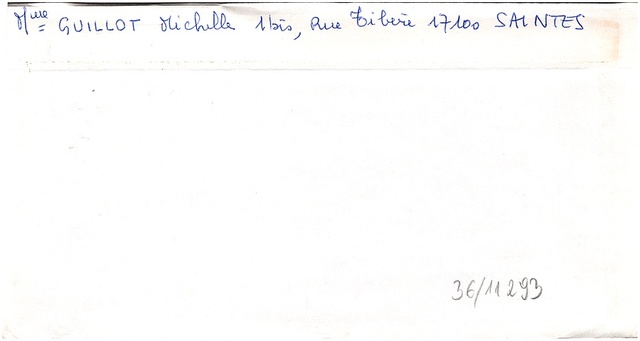 Mme GUILLOT Michelle 1bis, Rue Tibère 17100 SAINTES
36/11 293